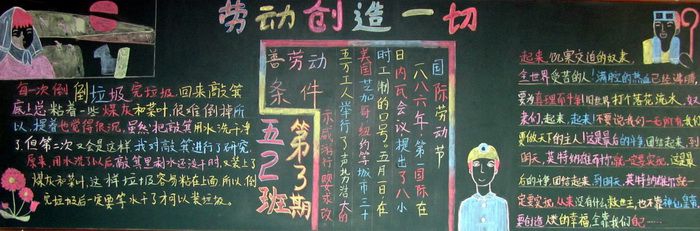 劳动创造一切
每一次倒倒垃圾完垃圾,回来敲筑
底上总粘着一些煤灰和菜叶,很难倒掉所
以,提着也觉得很沉,虽然把敲筑用水洗干净
了但第二次又会是这样 我对敲筑进行了研究
原来,用水洗了以后敲筑里剩水还没干时,又装上了
煤灰和菜叶,这样垃圾容易粘在上面,所以,倒
完垃圾后一定要等水干了才可以装垃圾。
国际劳动节
一八八六年,第一国际在
日内瓦会议提出了八小
时工制的口号。五月一日在
美国芝加哥纽约等城市三十
五万工人举行了声势浩大的
示威游行 要求改
善劳动
条件
第3期
五2班
起来,饥寒交迫的奴隶,
全世界受苦的人!满腔的热血已经沸腾
要为真理而斗争!旧世界打个落花流水,奴
隶们,起来,起来!不要说我们一无所有,我们
要做天下的主人!这是最后的斗争,团结起来,到
明天,英特纳雄耐尔就一定要实现,这是最
后的斗争团结起来,到明天,英特纳雄耐尔就一
定要实现,从来没有什么救世主,也不靠神仙皇帝,
要创造人类的幸福,全靠我们自己……